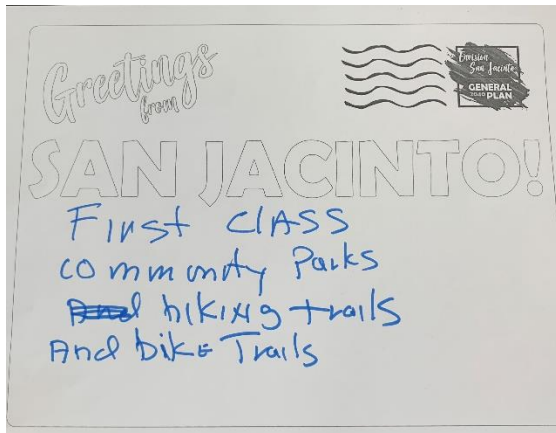 Greetings
from
Envision
San Jacinto
GENERAL
2040 PLAN
SAN JACINTO!
First CLASS
community Parks
And hiking trails
And bike Trails